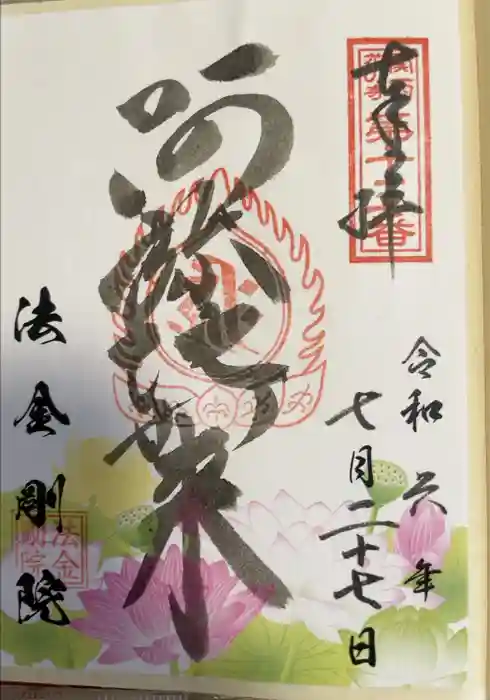 奉拝
令和六年
七月二十七日
阿弥陀如来
法金剛院
法金
剛院